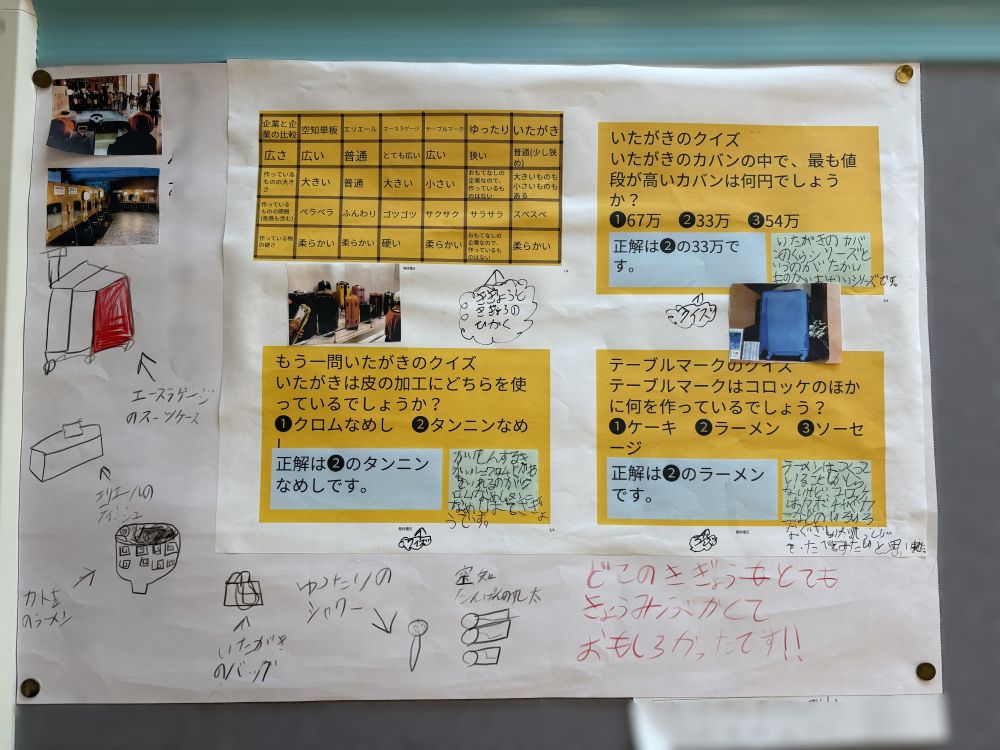 企業と企業の比較 空知単板 エリエール エースラゲージ テーブルマーク ゆったり いたがき
広さ 広い 普通 とても広い 広い 狭い 普通(少し狭め)
作っているものの大きさ 大きい 普通 大きい 小さい おもてなしの企業なので、作っているものはない 大きいものも小さいものもある
作っているものの感触(食感も含む) ペラペラ ふんわり ゴツゴツ サクサク サラサラ スベスベ
作っている物の硬さ 柔らかい 柔らかい 硬い 柔らかい おもてなしの企業なので、作っているものはない 柔らかい
きぎょうと
きぎょうの
ひかく
いたがきのクイズ
いたがきのカバンの中で、最も値
段が高いカバンは何円でしょう
か?
❶67万 ❷33万 ❸54万
正解は❷の33万で
す。
いたがきのカバ
クイズ
もう一問いたがきのクイズ
いたがきは皮の加工にどちらを使
っているでしょうか?
❶クロムなめし ❷タンニンなめ
し
正解は❷のタンニン
なめしです。
クイズ
テーブルマークのクイズ
テーブルマークはコロッケのほか
に何を作っているでしょう?
❶ケーキ ❷ラーメン ❸ソーセ
ージ
正解は❷のラーメン
です。
エースラゲージ
のスーツケース
エリエールの
ティッシュ
カトキ
のラーメン
いたがき
のバッグ
ゆったりの
シャワー
空知
たんぱんの丸太
どこのきぎょうもとても
きょうみぶかくて
おもしろかったです!!